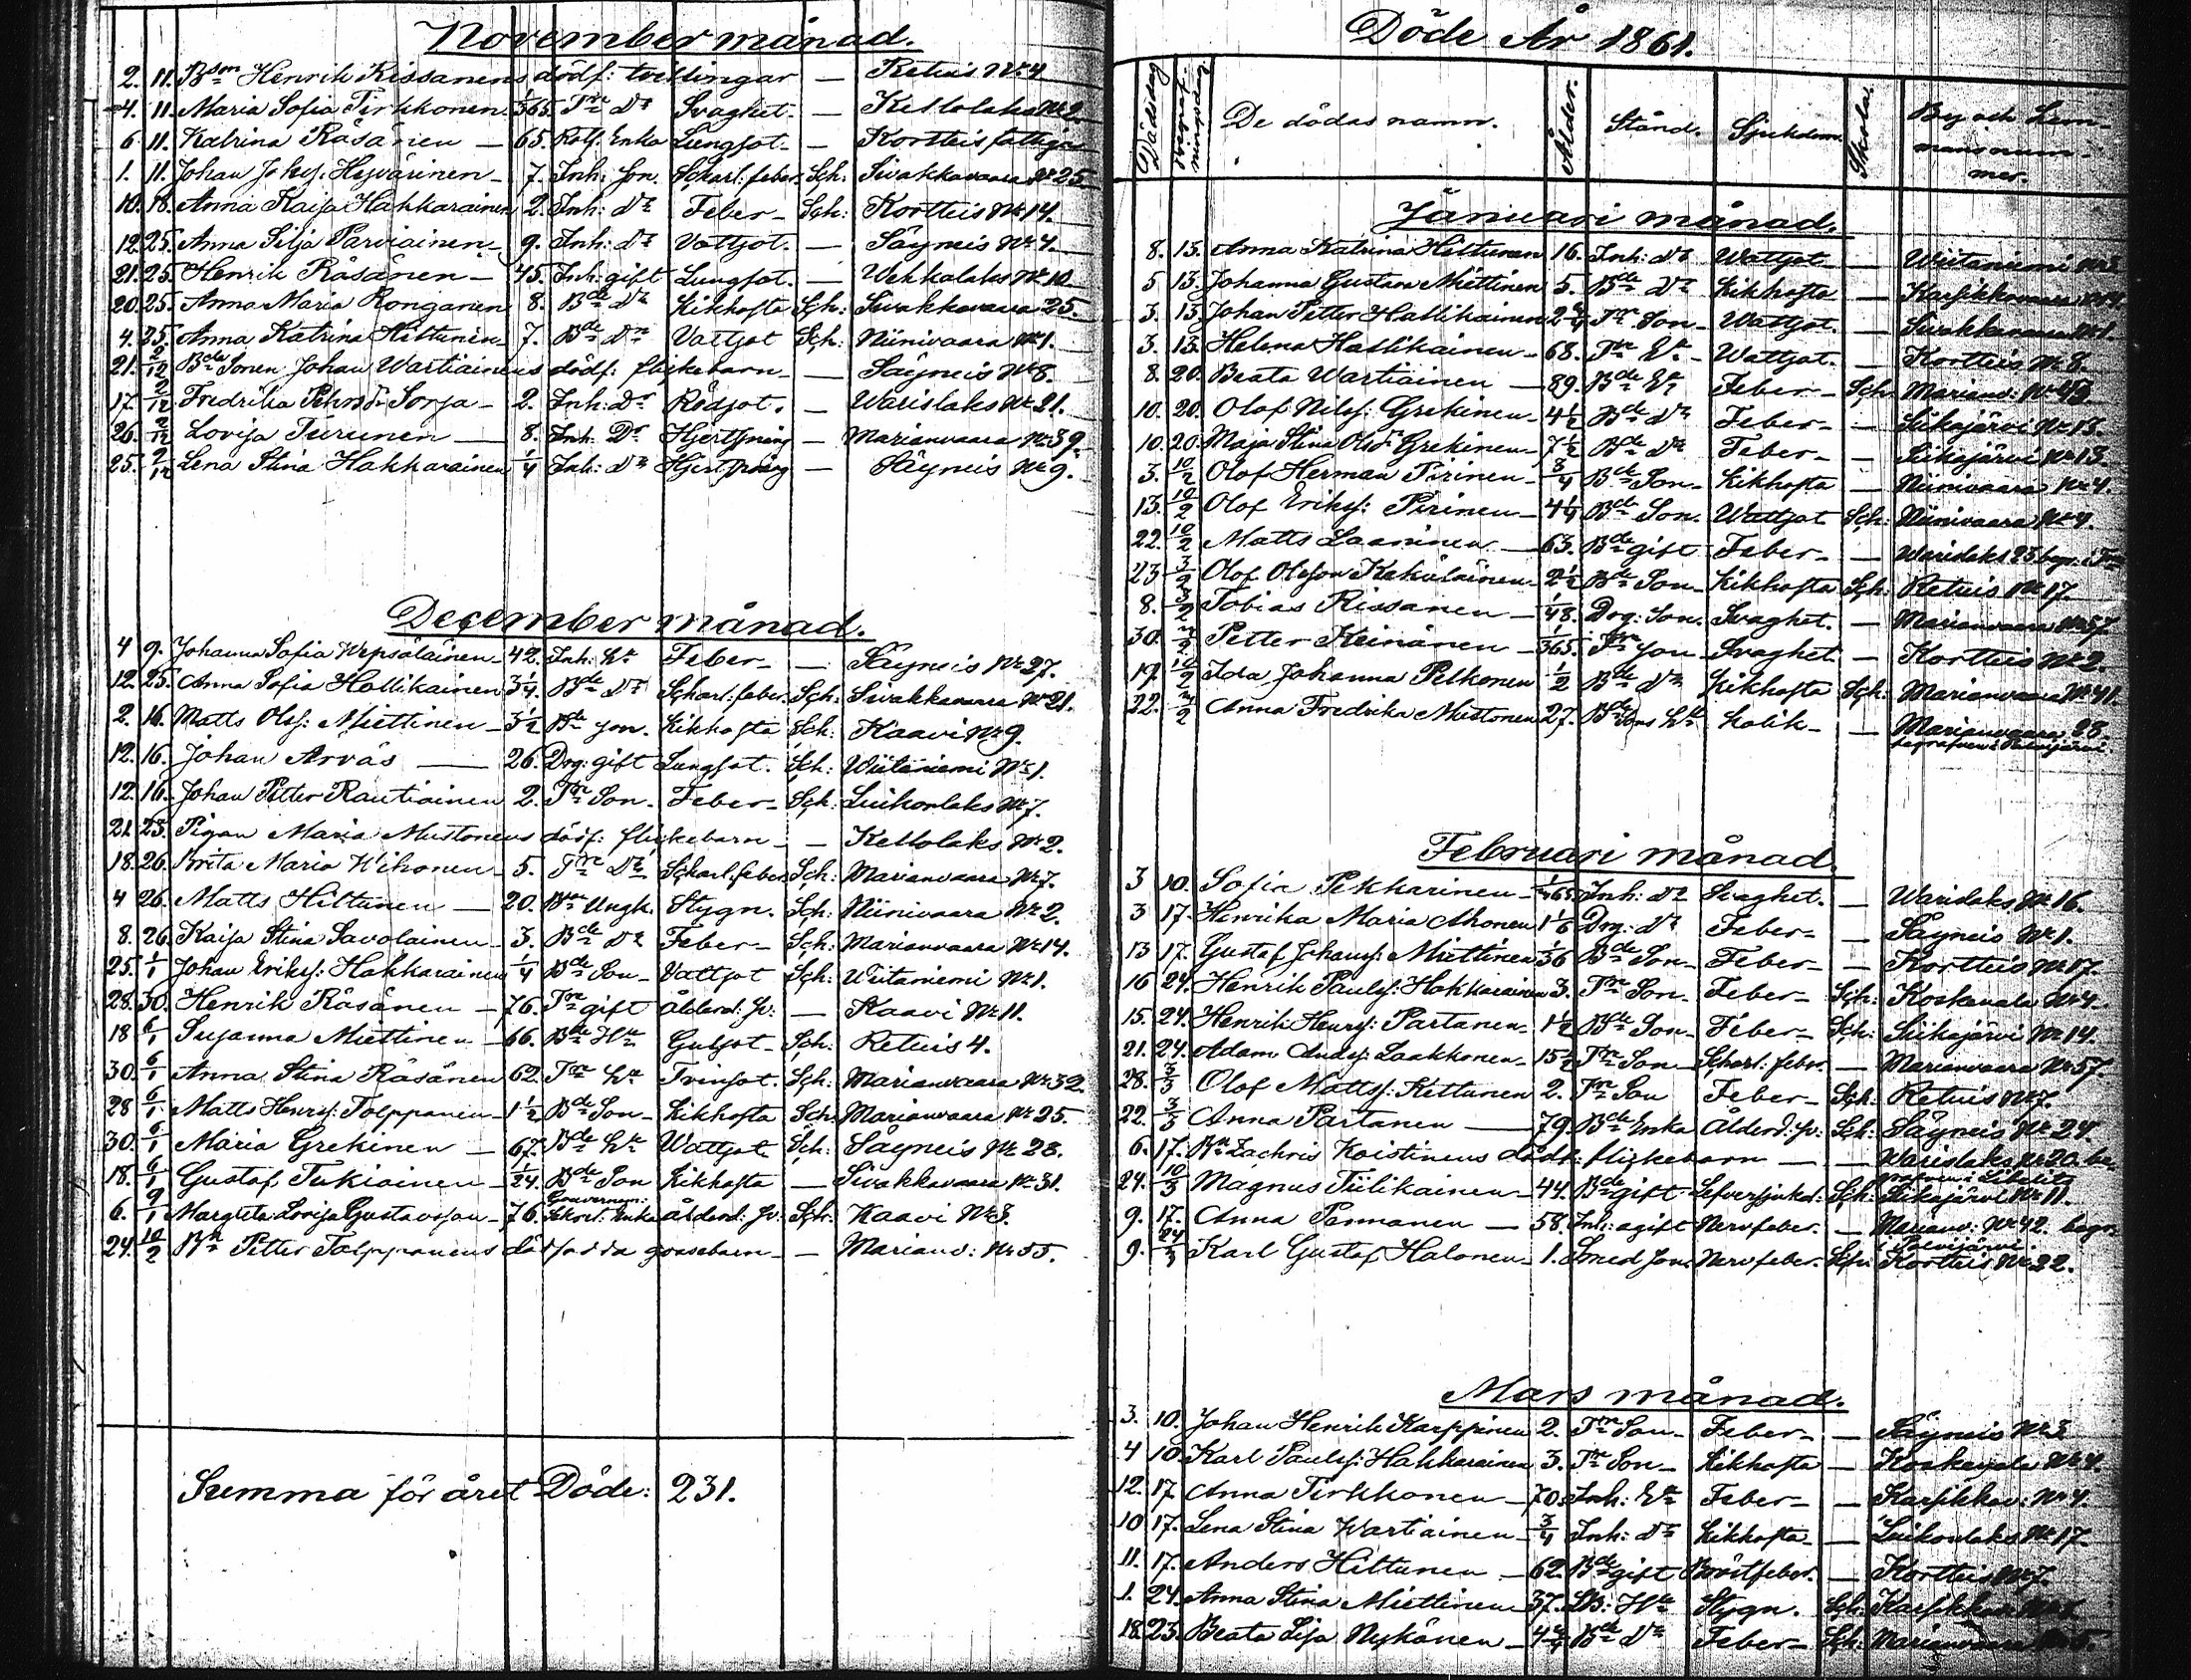 November månad.
2. 11. Bdesn Henrik Rissanens dödf: tvillingar — Retuis No 4
4. 11. Maria Sofia Tirkkonen 1/365. Trp Dr Svaghet. — Kettolaks No 2
6 11. Katrina Räsänen — 65. Rotf. Enka Lungsot. — Kortteis fattig
1. 11. Johan Johsf. Hyvärinen — 7. Inh: Son. Scharl: feber Sch: Sivakkavaara No 25
10. 18. Anna Kaisa Hakkarainen 2. Inh: Dr Feber — Sch: Kortteis No 14.
12. 25. Anna Silja Parviainen — 9. Inh: Dr Vattsot. — Säyneis No 4.
21. 25. Henrik Räsänen — 45. Inh: gift Lungsot. — Vehkalaks No 10
20. 25. Anna Maria Ronganen 8. Bde Dr Kikhosta Sch: Sivakkavaara 25.
4. 25. Anna Katrina Hiltunen 7. Bde Dr Vattsot Sch: Niinivaara No 1.
21. 2/12 Bde Sonen Johan Wartiainens dödf: flickebarn — — Säyneis No 8.
17. 2/12 Fredrika Sorsa — 2. Inh: Dr Rödsot. — Warislaks No 21.
26. 2/12 Lovisa Turunen — 8. Inh: Dr Hjertspräng — Marianvaara No 39.
25. 2/12 Lena Stina Hakkarainen 1/4 Inh: Dr Hjertspräng — Säyneis No 9.
December månad.
4 9. Johanna Sofia Wepsäläinen — 42. Inh: Hu Feber — — Säyneis No 27.
12. 25. Anna Sofia Hallikainen 3 1/4. Bde Dr Scharl: feber. Sch: Sivakkavaara No 21.
2. 16. Matts Olsf: Miettinen — 3 1/2 Bde son. Kikhosta Sch: Kaavi No 9.
12. 16. Johan Arvas — 26. Drg: gift Lungsot. Sch: Wiitaniemi No 1.
12. 16. Johan Petter Rautiainen 2. Trp Son. Feber — Sch: Luikonlaks No 7.
21 23. Pigan Maria Mustonens dödf: flickebarn — — Kettolaks No 2.
18. 26. Brita Maria Wihonen — 5. Trp Dr Scharl. feber Sch: Marianvaara No 7.
4 26. Matts Hiltunen — 20. Bde Ungk. Stygn. Sch: Niinivaara No 2.
8. 26. Kaisa Stina Savolainen — 3. Bde Dr Feber — Sch: Marianvaara No 14.
25. 1/1 Johan Eriksf: Hakkarainen 1/4 Bde Son — Vattsot Sch: Wiitaniemi No 1.
28. 30. Henrik Räsänen — 76. Trp gift Ålderd: sv: — Kaavi No 11.
18 6/1 Susanna Miettinen — 66. Bde Hu Gulsot — Sch: Retuis 4.
30. 6/1 Anna Stina Räsänen 62. Trp Hu Tvinsot. Sch: Marianvaara No 32.
28 6/1 Matts Henrsf: Tolppanen — 1 1/2 Bde Son — Kikhosta Sch: Marianvaara No 25.
30. 6/1 Maria Grekinen — 67. Bde Hu Wattsot Sch: Säyneis No 28.
18. 6/1 Gustaf Tukiainen — 1/24. Bde Son Kikhosta — Sivakkavaara No 31.
6. 9/1 Margreta Lovisa Gustavsson — 76. Gouvernem: Sekret: Enka Ålderd: sv: Sch: Kaavi No 3.
24. 10/2 Bn Petter Tolppanens dödfödda gossebarn — — Marianv: No 55.
Summa för året Döde: 231.
Döde År 1861.
Dödsdag
Begrafningsdag
De dödas namn.
Ålder.
Stånd.
Sjukdom.
Skola.
By och Hemmans nummer.
Januari månad.
8. 13. Anna Katrina Hiltunen 16. Inh: Dr Wattsot — Wiitaniemi No 3
5 13. Johanna Gustava Miettinen 5. Bde Dr Kikhosta — Karsikkovaara No 4.
3. 13. Johan Petter Hallikainen 2 3/4 Trp Son — Wattsot. — Sivakkavaara No 1.
3. 13. Helena Hallikainen — 68. Trp Ea — Wattsot. — Kortteis No 8.
8. 20. Beata Wartiainen — 89. Bde Ea Feber — Sch. Marianv: No 43
10. 20. Olof Nilsf: Grekinen — 4 1/2 Bde Dr Feber — — Siikajärvi No 13.
10. 20. Maja Stina Olsdr Grekinen — 7 1/2 Bde Dr Feber — — Siikajärvi No 13.
3. 10/2 Olof Herman Pirinen — 3/4 Bde Son — Kikhosta — Niinivaara No 4.
13. 10/2 Olof Eriksf: Pirinen — 4 1/4 Bde Son. Wattsot Sch: Niinivaara No 4.
22. 10/2 Matts Laaninen — 63. Bde gift Feber — — Warislaks 23 begr. i
23 3/2 Olof Olofson Kekäläinen — 2 1/2 Bde Son — Kikhosta Sch: Retuis No 17
8. 3/2 Tobias Rissanen — 1/48. Drg: Son. Svaghet. — Marianvaara No 57.
30. 3/2 Petter Heinänen — 1/365. Trp son Svaghet — Kortteis No 2.
19. 10/2 Ida Johanna Pelkonen 1/2 Bde Dr Kikhosta Sch: Marianvaara No 41.
22. 3/2 Anna Fredrika Mustonen 27. Bde Sons Hu Kolik — — Marianvaara 28. begrafven i Polvijärvi
Februari månad.
3 10. Sofia Pekkarinen — 1/365 Inh: Dr Svaghet. — Warislaks No 16.
3 17. Henrika Maria Ahonen 1 1/6 Drg: Dr Feber — — Säyneis No 1.
13 17. Gustaf Johansf: Miettinen 1/36 Bde Son — Feber — — Kortteis No 17.
16 24. Henrik Paulsf: Hakkarainen 3. Trp Son. Feber — Sch: Koskenala No 4.
15. 24. Henrik Henrsf: Partanen — 1 1/2 Bde Son — Feber — Sch: Siikajärvi No 14.
21. 24. Adam Andsf: Laakkonen — 15 1/2 Trp Son Scharl: feber. — Marianvaara No 57.
28. 3/3 Olof Mattsf: Kettunen 2. Trp Son Feber — Sch. Retuis No 7.
22. 3/3 Anna Partanen — 79. Bde Enka Ålderd: sv: Sch: Säyneis No 24.
6. 17. Bn Zachris Koistinens dödf: flickebarn — — Warislaks No 20. begrafven i Libelits
24. 10/3 Magnus Tiilikainen — 44. Bde gift Lefversjukd: Sch: Siikajärvi No 11.
9. 17. Anna Pannanen — 58. Inh: ogift Nervfeber. — Marianv: No 42. begr. i Polvijärvi.
9. 24/3 Karl Gustaf Halonen — 1. Smed Son. Nervfeber. Sch: Kortteis No 22.
Mars månad.
3. 10. Johan Henrik Karppinen 2. Trp Son — Feber — — Säyneis No 3
4 10. Karl Paulsf: Hakkarainen 3. Trp Son — Kikhosta — Koskenala No 4.
12. 17. Anna Tirkkonen — 70. Inh: Ea Feber — — Karsikkov: No 4.
10 17. Lena Stina Wartiainen — 3/4 Inh: Dr Kikhosta — — Luikonlaks No 17.
11. 17. Anders Hiltunen — 62. Bde gift Bröstfeber. — Kortteis No 7.
1. 24. Anna Stina Miettinen 37. Hu Stygn. Sch:
18. 23. Beata Lisa Nykänen — 4 Bde Dr Feber — Sch. Marianvaara